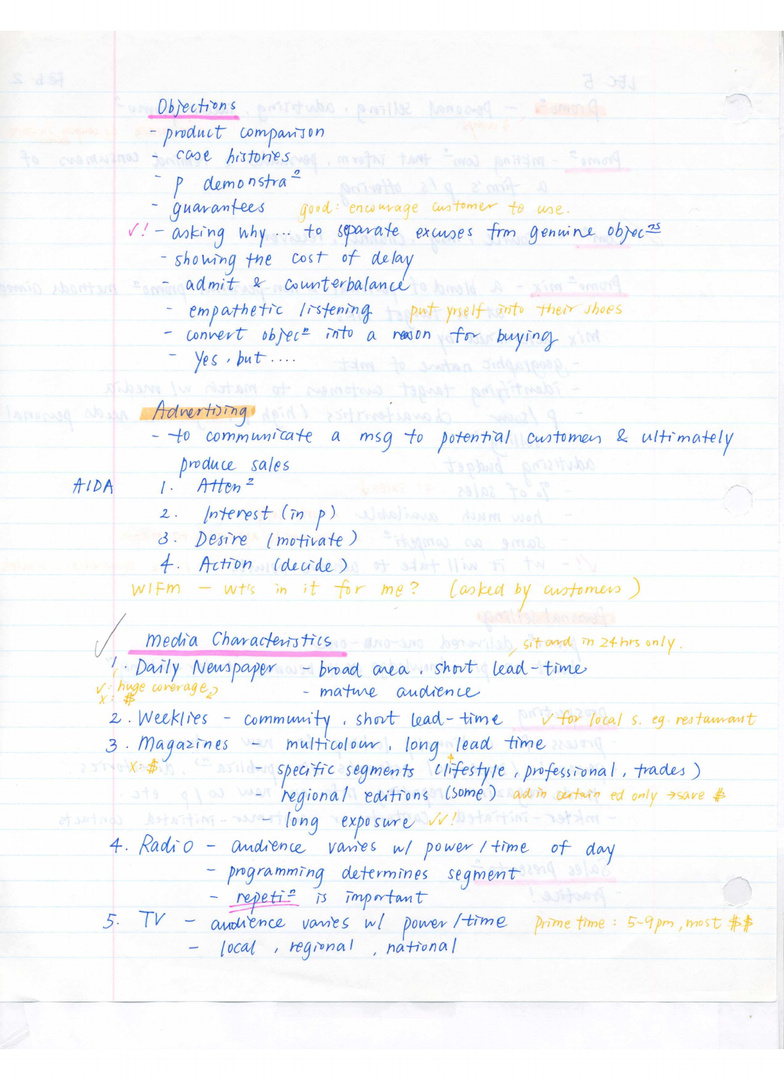 Objections
- product comparison
- case histories
- p demonstraⁿ
- guarantees good: encourage customer to use.
✓! - asking why ... to separate excuses frm genuine objecⁿˢ
- showing the cost of delay
- admit & counterbalance
- empathetic listening put yrself into their shoes
- convert objecⁿ into a reason for buying
- Yes, but ....
Advertising
- to communicate a msg to potential customers & ultimately
produce sales
AIDA 1. Attenⁿ
2. Interest (in p)
3. Desire (motivate)
4. Action (decide)
WIFM - wt's in it for me? (asked by customers)
✓ Media Characteristics in 24 hrs only.
1. Daily Newspaper - broad area, short lead-time
✓: huge coverage - mature audience
x: $
2. Weeklies - community, short lead-time ✓ for local s. eg. restaurant
3. Magazines - multicolour, long lead time
x: $ - specific segments (lifestyle, professional, trades)
- regional editions (some) ad in certain ed only → save $
- long exposure ✓✓!
4. Radio - audience varies w/ power/time of day
- programming determines segment
- repetiⁿ is important
5. TV - audience varies w/ power/time prime time: 5-9pm, most $$
- local, regional, national